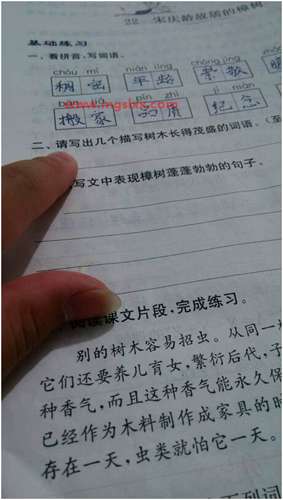 22 宋庆龄故居的樟树
基础练习
一、看拼音，写词语。
chóu mì nián líng chóng jìng
稠密 年龄 崇敬
bān jiā pǐn zhì jì niàn
搬家 品质 纪念
www.lngshx.com
二、请写出几个描写树木长得茂盛的词语。(至
写文中表现樟树蓬蓬勃勃的句子。
阅读课文片段，完成练习。
别的树木容易招虫。从同一
它们还要养儿育女，繁衍后代，子
种香气，而且这种香气能永久保
已经作为木料制作成家具的时
存在一天，虫类就怕它一天。